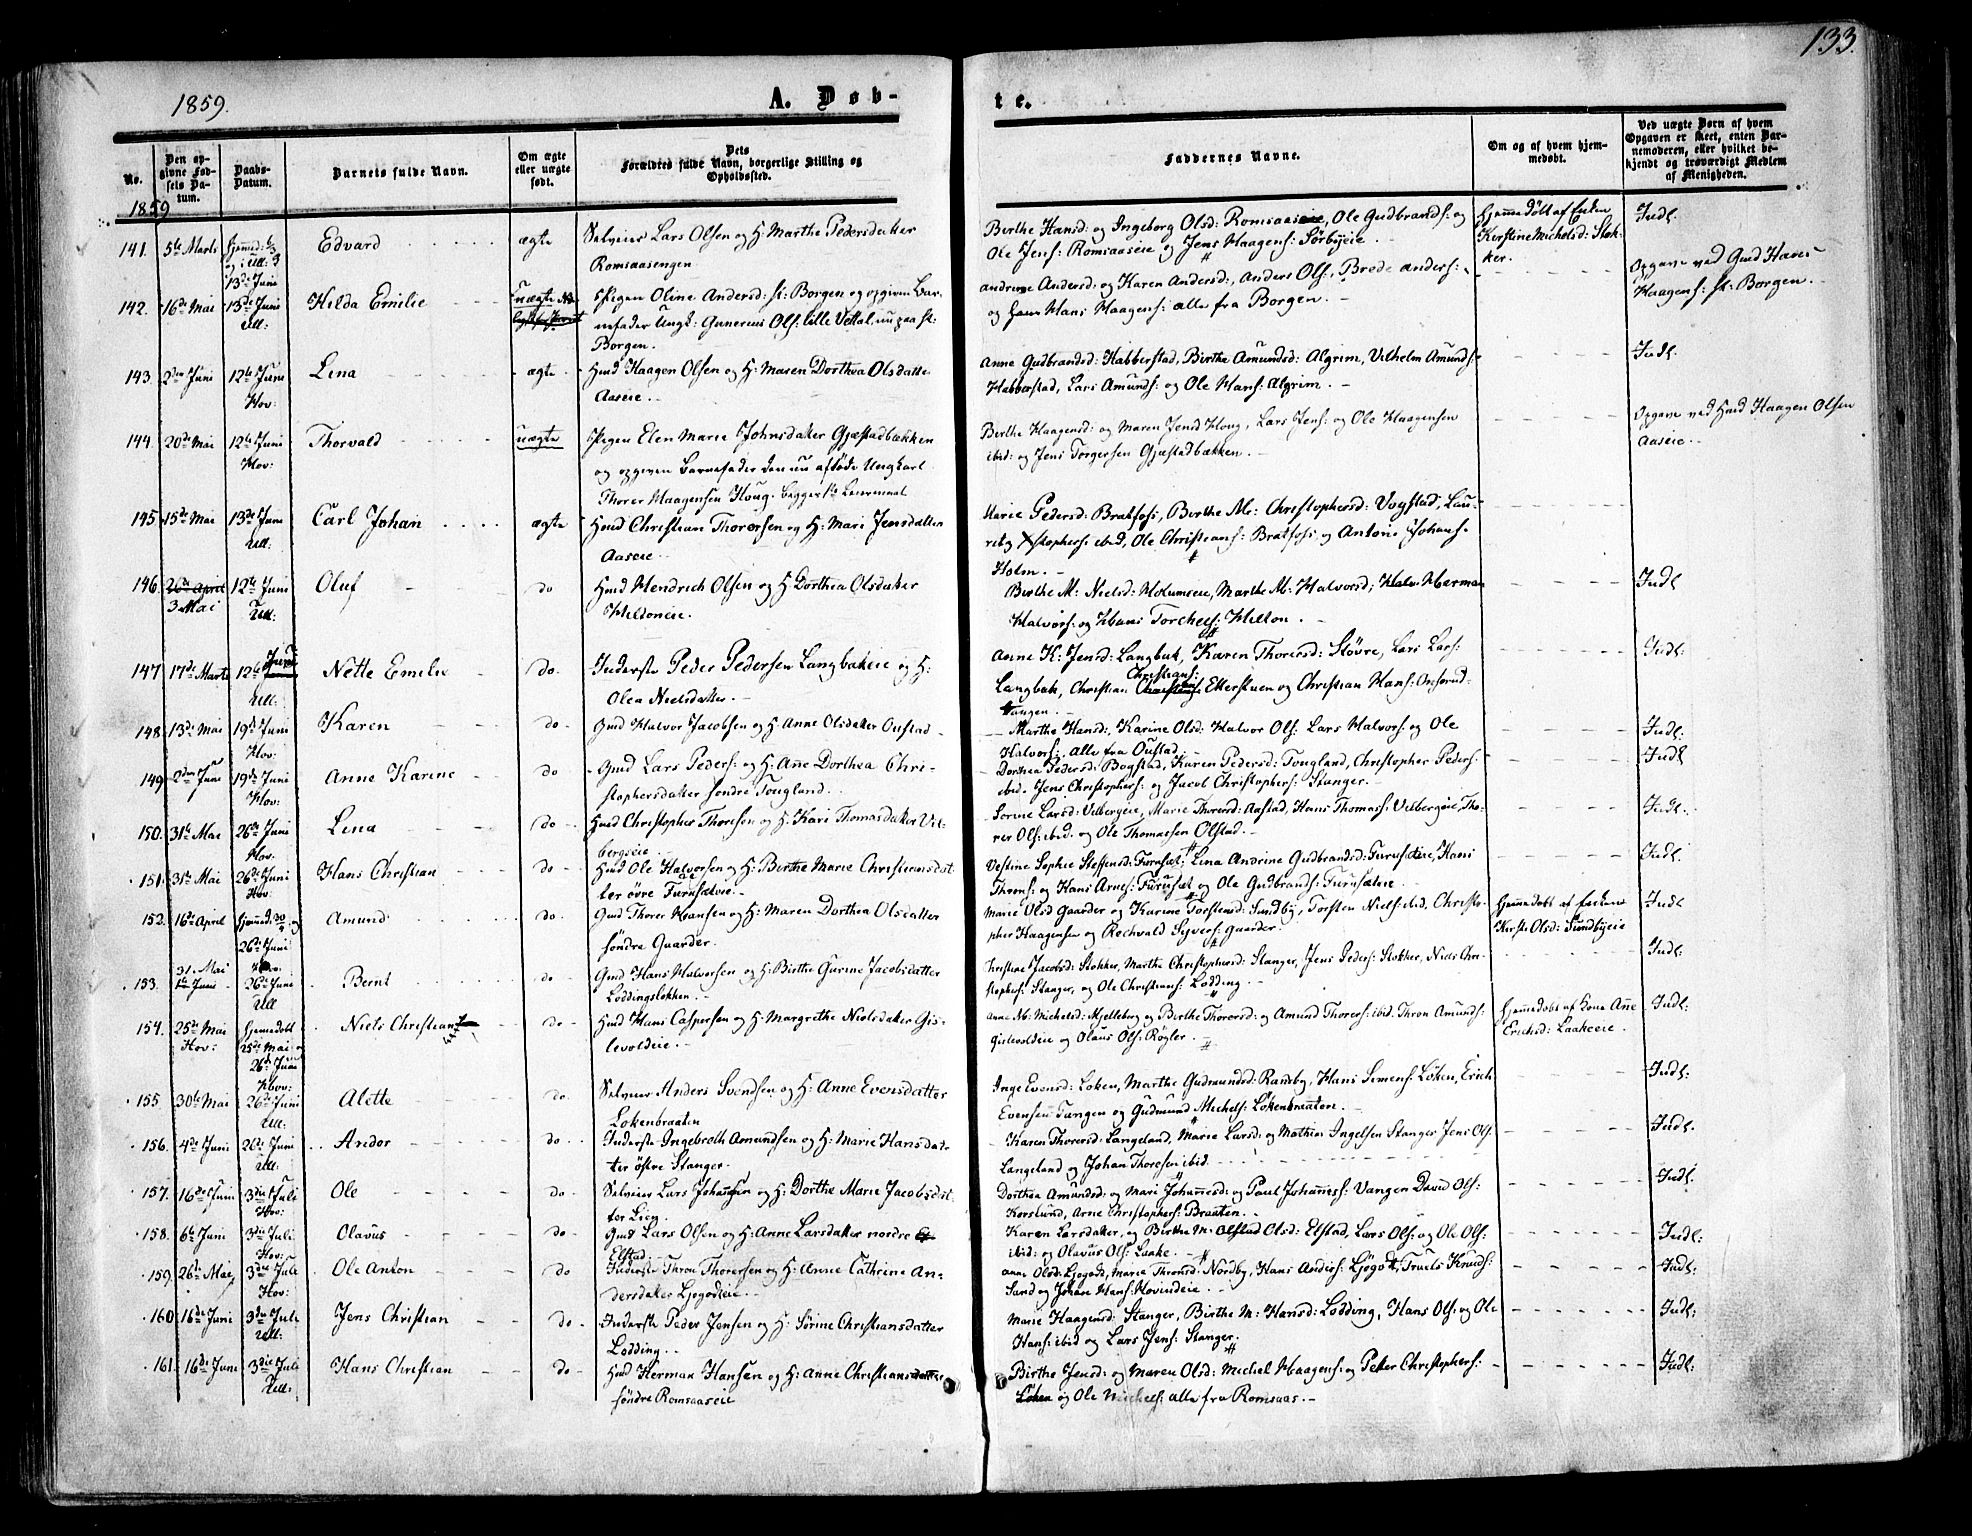 133.
1859.
A. Døb-
te.
No.
Den op-
givne Fød-
sels Da-
tum.
Daabs-
Datum.
Barnets fulde Navn.
Om ægte
eller uægte
født.
Dets
Forældres fulde Navn, borgerlige Stilling og
Opholdssted.
Faddernes Navne.
Om og af hvem hjem-
medøbt.
Ved uægte Børn af hvem
Opgaven er skeet, enten Bar-
nemoderen, eller hvilket be-
kjendt og troværdigt Medlem
af Menigheden.
1859
141. 5te Marts 13de Juni Edvard ægte Selveier Lars Olsen og H: Marthe Pedersdatter
Romsaasengen
Berthe Hansd: og Ingeborg Olsd: Romsaaseie, Ole Gudbrands: og
Ole Jens: Romsaaseie og Jens Haagens: Sörbyeie
Hjemmedöbt af Enken
Kirstine Michelsd: Stok-
ker.
Indl.
142. 16de Mai 13de Juni Ull: Hilda Emilie uægte Pigen Oline Andersd: st: Borgen og opgiven Bar-
nefader Ungk: Gunerius Ols: lille Vettal, nu paa st:
Borgen.
Andrine Andersd: og Karen Andersd:, Anders Ols:, Brede Anders:
og Hans Haagens: alle fra Borgen.
Opgave ved Gmd
Haagens: st: Borgen.
143. 2den Juni 12te Juni Hov: Lina ægte Hmd Haagen Olsen og H: Maren Dorthea Olsdatter
Aaseie.
Anne Gudbrandsd: Habberstad, Birthe Amundsd: Algrim, Vilhelm Amunds:
Habberstad, Lars Amunds: og Ole Hans: Algrim.
Indl.
144. 20de Mai 12te Juni Hov: Thorvald uægte Pigen Elen Marie Johnsdatter Gjæstadbækken
og opgiven Barnefader den nu afdöde Ungkarl
Thorer Haagensen Houg. begges 1ste Leiermaal
Berthe Haagensd: og Maren Jensd Houg, Lars Jens: og Ole Haagensen
ibid: og Jens Torgersen Gjæstadbækken.
Opgave ved Hmd Haagen Olsen
Aaseie.
145 15de Mai 13de Juni Ull: Carl Johan ægte Hmd Christian Thorersen og H: Mari Jensdatter
Aaseie
Marie Pedersd: Bratfos, Birthe M: Christophersd: Vogstad, Lau-
ritz Xstophers: ibid, Ole Christians: Bratfos og Anton Johans:
Holm.
146. 26de April 3 Mai 12te Juni Ull: Oluf do Hmd Hendrich Olsen og H Dorthea Olsdatter
Meldoneie.
Birthe M: Nielsd: Holumseie, Marthe M: Halvorsd:, Halv: Herman
Halvors: og Hans Torchels: Melton.
Indl
147 17de Marts 12te Juni Ull: Nette Emilie do Inderste Peder Pedersen Langbakeie og H:
Olea Nielsdatter.
Anne K: Jensd: Langbak, Karen Thorersd: Stövre, Lars Lars:
Langbak, Christian Christians: Etterstuen og Christian Hans: Onsrud-
tangen.
Indl:
148 13de Mai 19de Juni Hov: Karen do Gmd Halvor Jacobsen og H: Anne Olsdatter Oustad
Marthe Hansd:, Karine Olsd: Halvor Ols: Lars Halvors: og Ole
Halvors:, alle fra Oustad.
Indl:
149 2den Juni 19de Juni Hov: Anne Karine do Gmd Lars Peders: og H: Anne Dorthea Chri-
stophersdatter söndre Tougland.
Dorthea Pedersd: Bogstad, Karen Pedersd: Tougland, Christopher Peders:
ibid. Jens Christophers: og Jacob Christophers: Stanger.
Indl
150. 31te Mai 26de Juni Hov. Lina do Hmd Christopher Thoresen og H: Kari Tomasdatter Vil-
bergseie
Sorine Larsd: Vilbergeie, Marie Thorersd: Aastad, Hans Thomass: Vilbergeie, Tho-
rer Ols: ibid. og Ole Thomassen Olstad.
Indl.
151. 31te Mai 26de Juni Hov: Hans Christian do Hmd Ole Halvorsen og H: Berthe Marie Christiansdat-
ter övre Furusæteie
Vestine Sophie Steffensd: Furusæt, Lina Andrine Gudbrandsd: Furusæteie, Hans
Throns: og Hans Arnes: Furusæt og Ole Gudbrands: Furusæteie
Indl:
152. 16de April Hjemmed. 30/4 og 26de Juni Hov: Amund do Gmd Thorer Hansen og H: Maren Dorthea Olsdatter
söndre Gaarder.
Marie Olsd Gaarder og Karine Torstensd: Sundby, Torsten Niels: ibid, Christo-
pher Haagensen og Rechvald Syvers: Gaarder.
Hjemmedöbt af Enken
Kirsti Olsd: Sundbyeie
Indl
153. 31. Mai 26de Juni Ull Bernt do Gmd Hans Halvorsen og H: Birthe Gurine Jacobsdatter
Loddingslokken.
Christine Jacobsd: Stokker, Marthe Christophersd: Stanger, Jens Peders: Stokker, Niels Chri-
stophers: Stanger, og Ole Christians: Lodding.
Indl.
154. 25de Mai Hov: Hjemmedöbt 25de Mai 26de Juni Hov: Niels Christian do Hmd Hans Caspersen og H: Margrethe Nielsdatter Gis-
levoldeie.
Anne M: Michelsd: Mjelleberg og Birthe Thorersd: og Amund Thorers: ibid. Thron Amunds:
Gislevoldeie og Olaus Ols: Røgler.
Hjemmedöbt af Kone Anne
Erichsd: Laakeeie.
Indl:
155 30te Mai 26de Juni Ull: Alette do. Selveier Anders Svendsen og H: Anne Evensdatter
Lökenbraaten
Inge Evensd: Løken, Marthe Gudmundsd: Randby, Hans Simens: Löken, Erich
Evensen Tangen og Gudmund Michels: Lökenbraaten.
Indl:
156. 4de Juni 26de Juni Ull: Andor do Inderste Ingebreth Amundsen og H: Marie Hansdat-
ter östre Stanger.
Karen Thorersd: Langeland, Marie Larsd: og Mathias Ingelsen Stanger, Jens Ols:
Langeland og Johan Thoresen ibid.
Indl:
157. 16de Juni 3die Juli Hov: Ole do Selveier Lars Johannsen og H: Dorthe Marie Jacobsdat-
ter Lien.
Dorthea Amundsd: og Mari Johannesd: og Paul Johanness: Vangen David Ols:
Korslund, Arne Christophers: Braaten.
Indl:
158. 6te Juni 3die Juli Hov: Olavus do Gmd Lars Olsen og H: Anne Larsdatter nordre
Elstad
Karen Larsdatter, og Birthe M. Olsd: Elstad, Lars Ols: og Ole Ols:
ibid: og Olavus Ols: Laake.
Indl:
159. 26de Mai 3die Juli Hov: Ole Anton do Inderste Thron Thorersen og H: Anne Cathrine An-
dersdatter Ljögodteie.
Anne Olsd: Ljögodt, Marie Thronsd: Nordby, Hans Anders: Ljögodt, Truels Knuds:
Sand og Johan Hans: Hovindeie.
Indl:
160 16de Juni 3die Juli Ull: Jens Christian do Inderste Peder Jensen og H: Sörine Christiansdatter
Lodding.
Marie Haagensd: Stanger, Birthe M: Hansd: Lodding, Hans Ols: og Ole
Hans: ibid og Lars Jens: Stanger.
Indl:
161. 16de Juni 3die Juli Ull: Hans Christian do Hmd Herman Hansen og H: Anne Christiansdatter
söndre Romsaaseie
Birthe Jensd: og Maren Olsd: Michel Haagens: og Peter Christophers:
Löken og Ole Michels: alle fra Romsaas.
Indl: